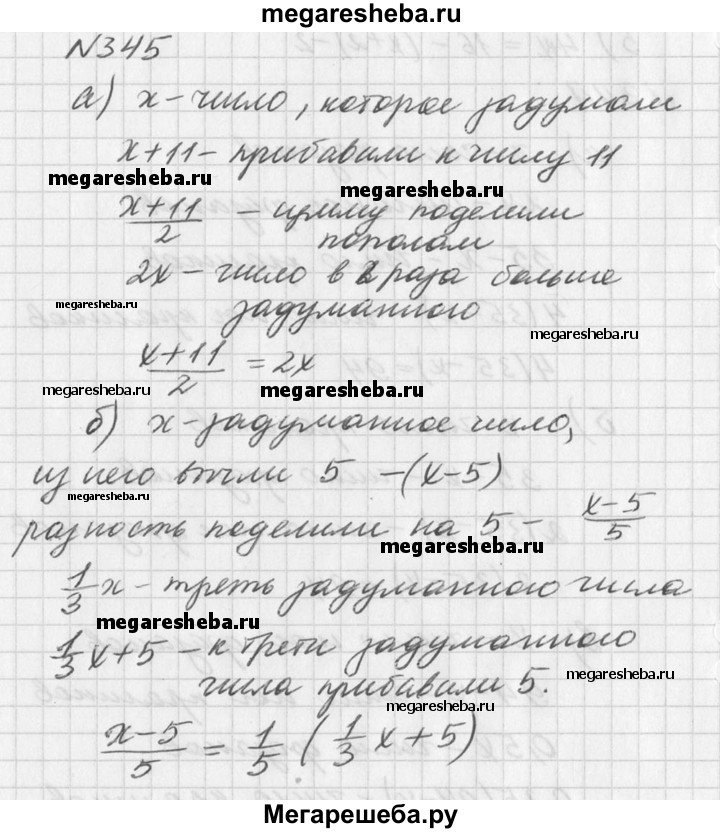 megaresheba.ru
N345
а) x – число, которое задумали
x+11 – прибавили к числу 11
megaresheba.ru megaresheba.ru
x+11/2 – сумму поделили
пополам
2x – число в 2 раза больше
megaresheba.ru задуманного
megaresheba.ru
x+11/2 = 2x
megaresheba.ru megaresheba.ru
б) x – задуманное число,
из него вычли 5 – (x–5)
megaresheba.ru
разность поделили на 5 – x–5/5
megaresheba.ru
1/3x – треть задуманного числа
megaresheba.ru
1/3x+5 – к трети задуманного
megaresheba.ru
числа прибавили 5.
megaresheba.ru
x–5/5 = 1/5 (1/3x+5)
megaresheba.ru megaresheba.ru
Мегарешеба.ру